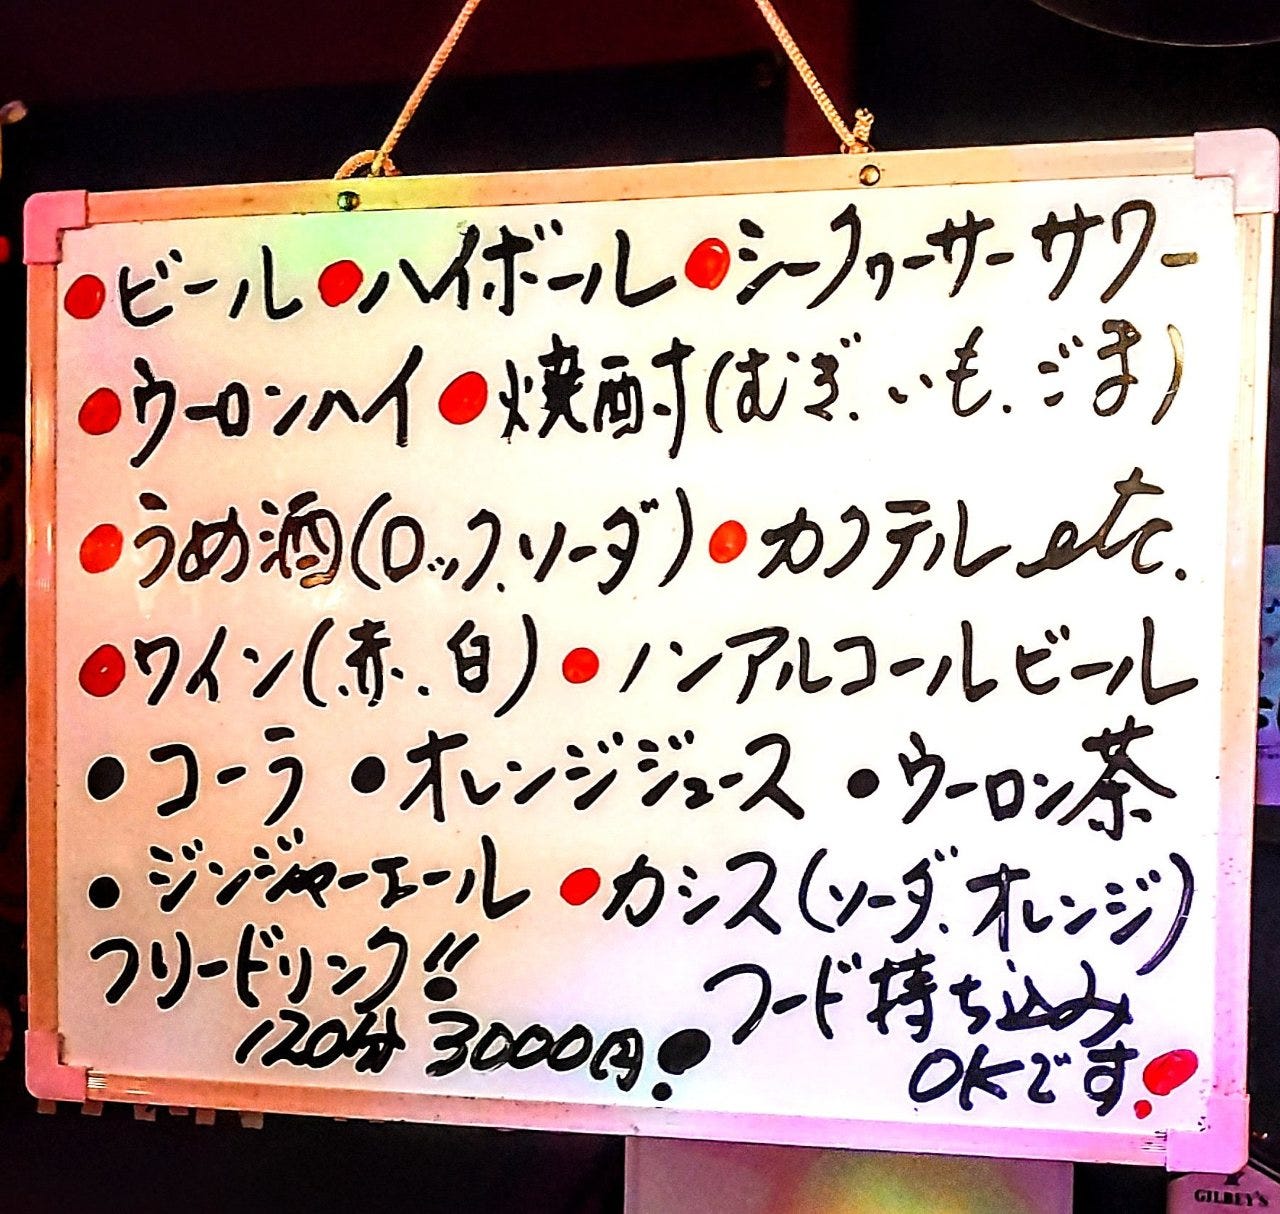 ●ビール●ハイボール●シークヮーサーサワー
●ウーロンハイ●焼酎(むぎ、いも、ごま)
●うめ酒(ロック、ソーダ)●カクテルetc.
●ワイン(赤、白)●ノンアルコールビール
●コーラ●オレンジジュース●ウーロン茶
●ジンジャーエール●カシス(ソーダ、オレンジ)
フリードリンク!!
120分 3000円!
フード持ち込み
OKです!
GILBEY'S